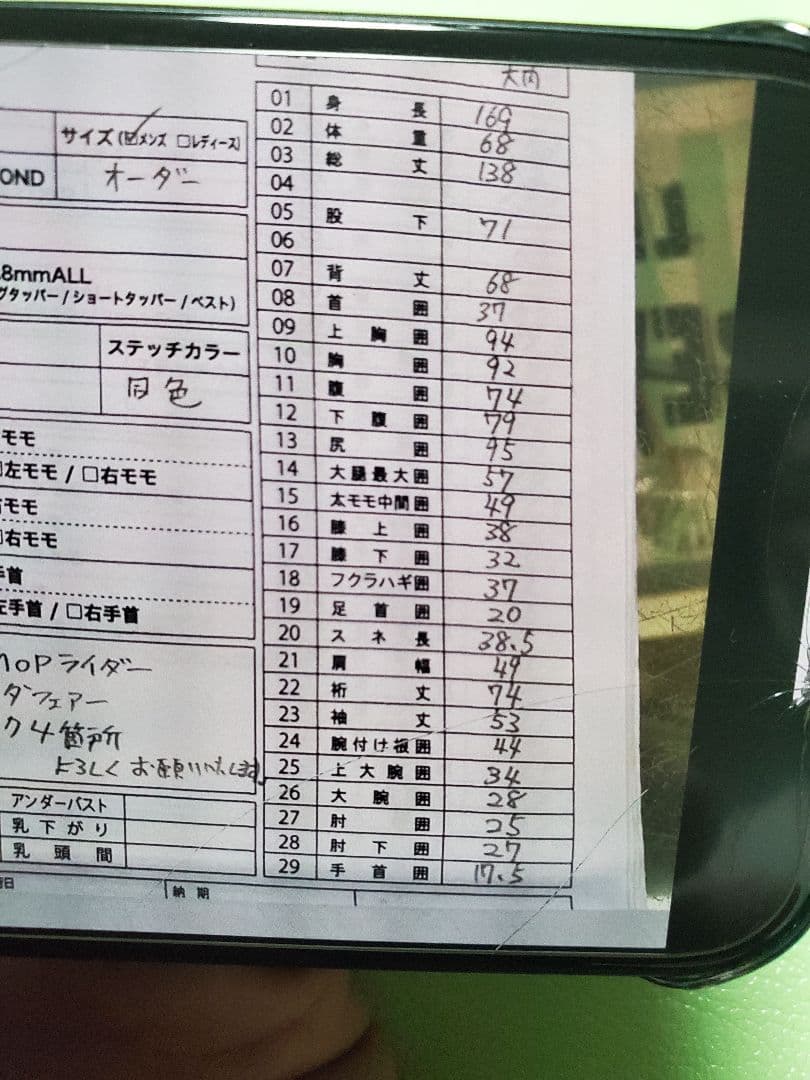 大内
サイズ(☑メンズ □レディース)
OND
オーダー
8mmALL
グタッパー/ショートタッパー/ベスト)
ステッチカラー
同色
モモ
左モモ / □右モモ
モモ
右モモ
手首
左手首 / □右手首
MOPライダー
ダフェアー
ク4箇所
よろしくお願いいたします
アンダーバスト
乳下がり
乳頭間
納期
01 身長 169
02 体重 68
03 総丈 138
04
05 股下 71
06
07 背丈 68
08 首囲 37
09 上胸囲 94
10 胸囲 92
11 腹囲 74
12 下腹囲 79
13 尻囲 95
14 大腿最大囲 57
15 太モモ中間囲 49
16 膝上囲 38
17 膝下囲 32
18 フクラハギ囲 37
19 足首囲 20
20 スネ長 38.5
21 肩幅 49
22 裄丈 74
23 袖丈 53
24 腕付け根囲 44
25 上大腕囲 34
26 大腕囲 28
27 肘囲 25
28 肘下囲 27
29 手首囲 17.5